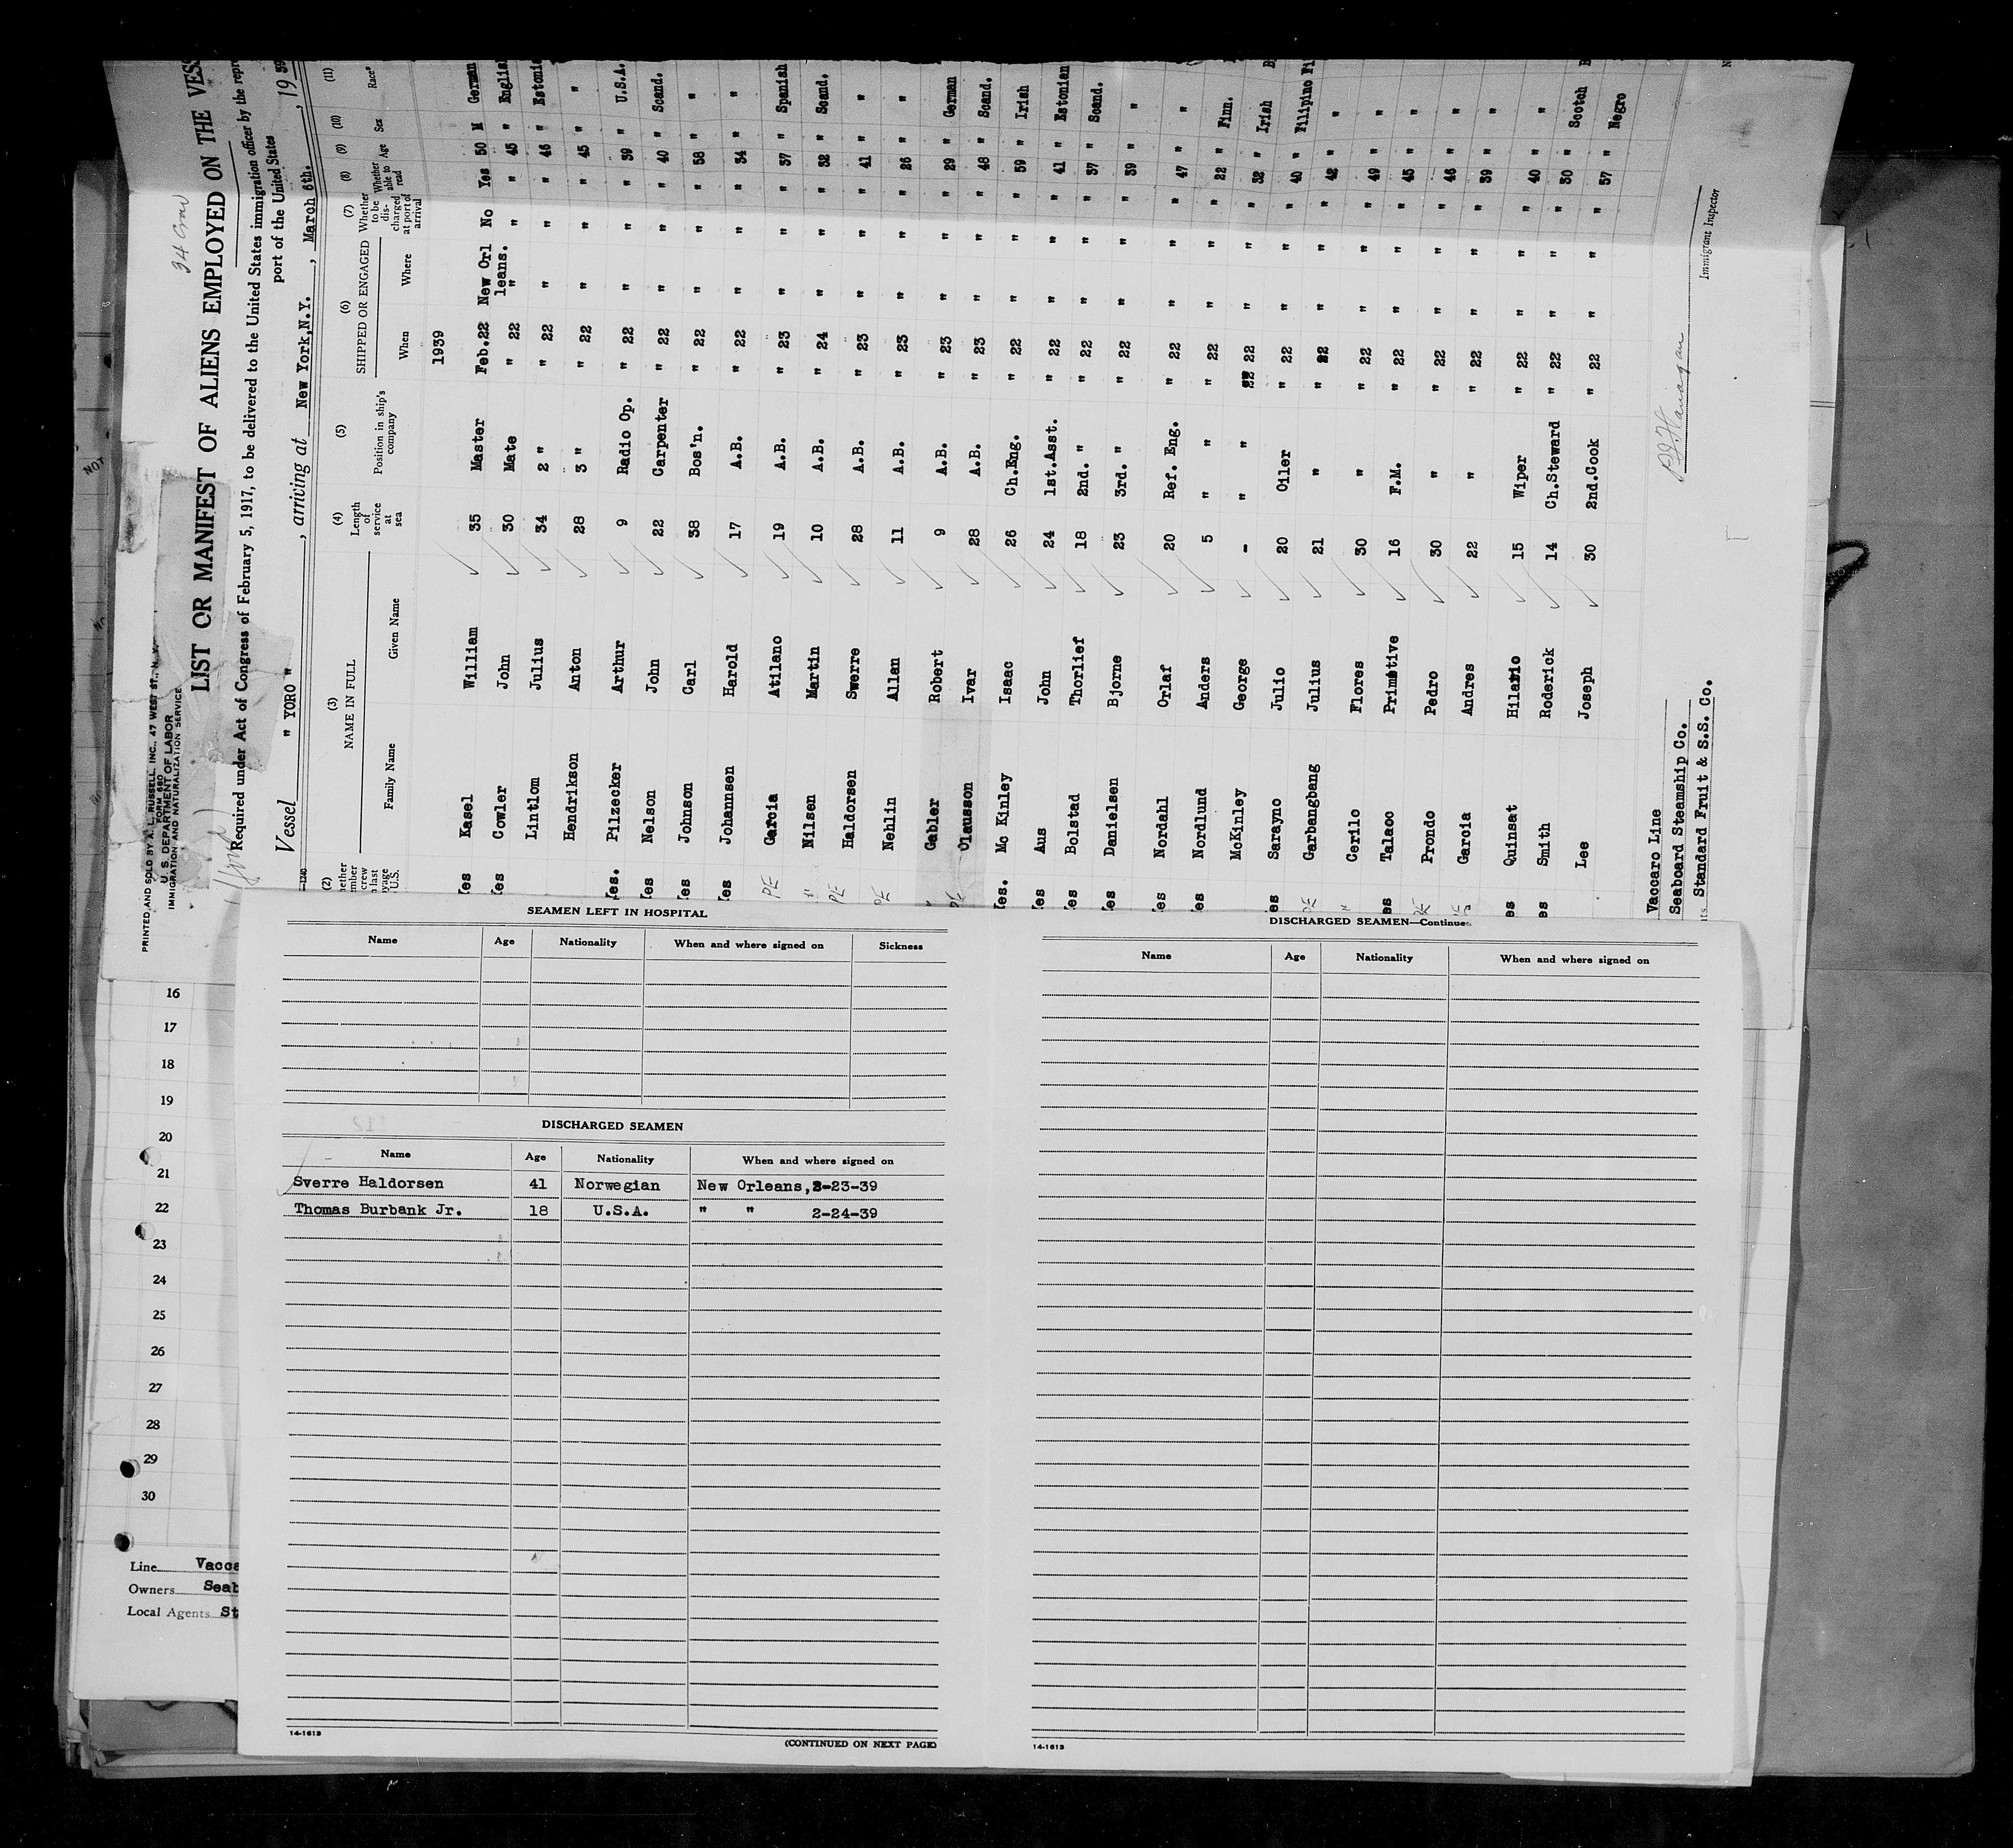 PRINTED AND SOLD BY A. L. RUSSELL, INC., 47 WEST ST., N. Y.
FORM 680
U. S. DEPARTMENT OF LABOR
IMMIGRATION AND NATURALIZATION SERVICE
34 Crew
LIST OR MANIFEST OF ALIENS EMPLOYED ON THE VESS
Required under Act of Congress of February 5, 1917, to be delivered to the United States immigration officer by the repr
port of the United States
Vessel " YORO " , arriving at New York,N.Y. , March 6th. , 19 39
(2) (3) (4) (5) (6) (7) (8) (9) (10) (11)
NAME IN FULL Length of service at sea Position in ship's company SHIPPED OR ENGAGED Whether to be dis- charged at port of arrival Whether able to read Age Sex Race*
Family Name Given Name When Where
1939
Yes Kasel William 35 Master Feb.22 New Orl leans. No Yes 50 M German
Yes Cowler John 30 Mate " 22 " " " 45 " English
Lintlom Julius 34 2 " " 22 " " " 46 " Estonia
Hendrikson Anton 28 3 " " 22 " " " 45 " "
Yes. Pilzecker Arthur 9 Radio Op. " 22 " " " 39 " U.S.A.
Yes Nelson John 22 Carpenter " 22 " " " 40 " Scand.
Yes Johnson Carl 38 Bos'n. " 22 " " " 58 " "
Yes Johannsen Harold 17 A.B. " 22 " " " 34 " "
PE Garcia Atilano 19 A.B. " 23 " " " 37 " Spanish
" Nilsen Martin 10 A.B. " 24 " " " 32 " Scand.
PE Haldorsen Swerre 28 A.B. " 23 " " " 41 " "
PE Nehlin Allan 11 A.B. " 23 " " " 26 " "
" Gabler Robert 9 A.B. " 23 " " " 29 " German
PE Olausson Ivar 28 A.B. " 23 " " " 48 " Scand.
Yes. Mc Kinley Isaac 26 Ch.Eng. " 22 " " " 59 " Irish
Yes Aus John 24 1st.Asst. " 22 " " " 41 " Estonian
Yes Bolstad Thorlief 18 2nd. " " 22 " " " 37 " Scand.
Yes Danielsen Bjorne 23 3rd. " " 22 " " " 39 " "
Yes Nordahl Orlaf 20 Ref. Eng. " 22 " " " 47 " "
Yes Nordlund Anders 5 " " " 22 " " " 22 " Finn.
McKinley George - " " 22 22 " " " 32 " Irish
es Sarayno Julio 20 Oiler " 22 " " " 40 " Filipino Fi
PE Garbangbang Julius 21 " " 22 " " " 42 " "
" Cerilo Flores 30 " " 22 " " " 49 " "
es Talaoc Primetive 16 F.M. " 22 " " " 45 " "
PE Prondo Pedro 30 " " 22 " " " 46 " "
Garcia Andres 22 " " 22 " " " 39 " "
es Quinsat Hilario 15 Wiper " 22 " " " 40 " "
es Smith Roderick 14 Ch.Steward " 22 " " " 30 " Scotch B
Lee Joseph 30 2nd.Cook " 22 " " " 57 " Negro
Vaccaro Line
Seaboard Steamship Co.
Standard Fruit & S.S. Co.
Immigrant Inspector
SEAMEN LEFT IN HOSPITAL
Name Age Nationality When and where signed on Sickness
DISCHARGED SEAMEN
Name Age Nationality When and where signed on
Sverre Haldorsen 41 Norwegian New Orleans,2-23-39
Thomas Burbank Jr. 18 U.S.A. " " 2-24-39
14-1613
(CONTINUED ON NEXT PAGE)
DISCHARGED SEAMEN—Continue
Name Age Nationality When and where signed on
14-1613
16
17
18
19
20
21
22
23
24
25
26
27
28
29
30
Line Vacca
Owners Seab
Local Agents St